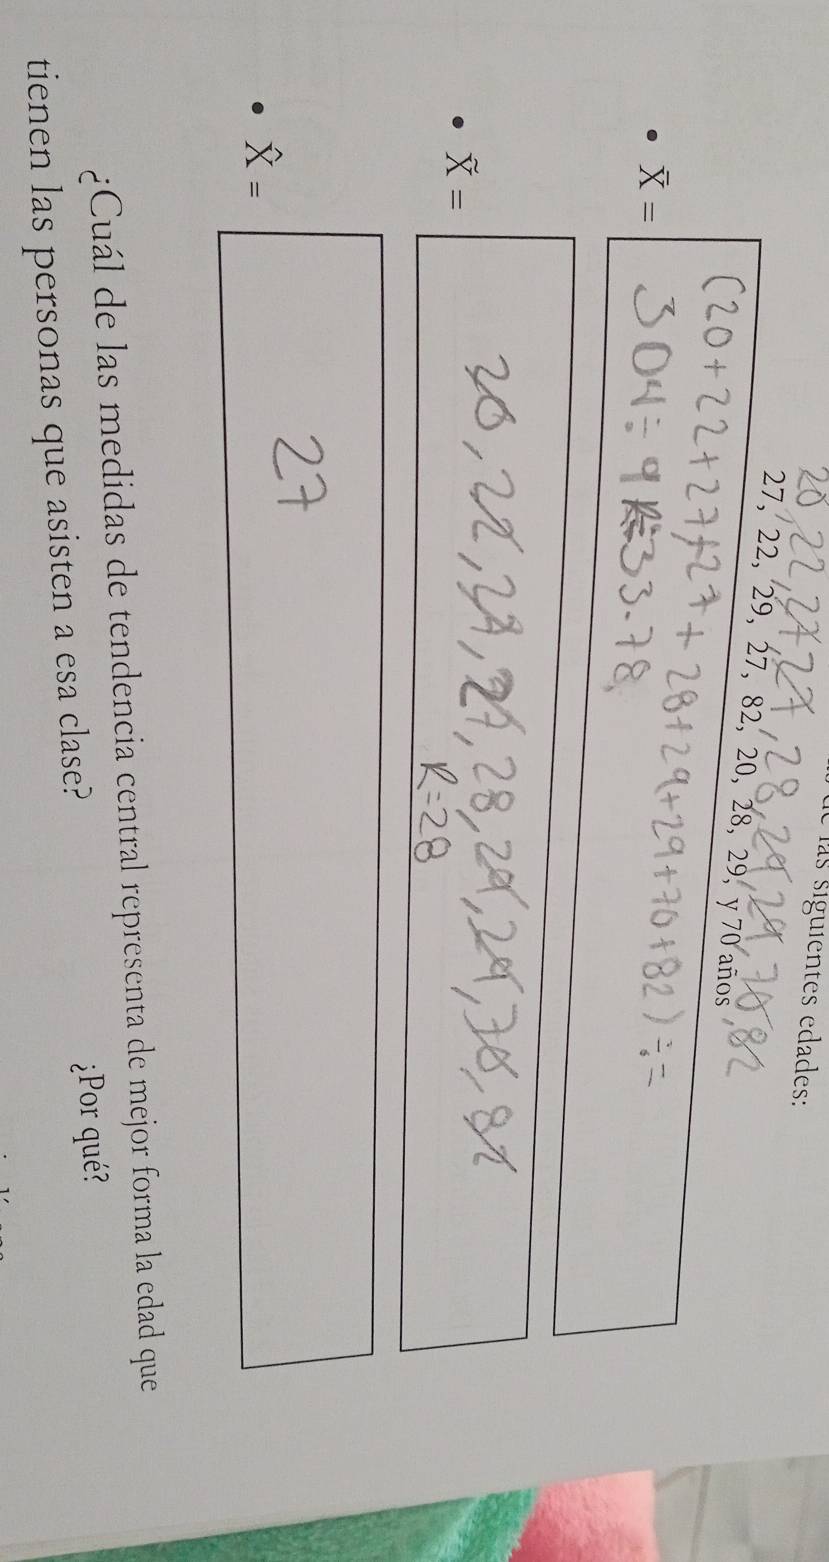 las siguientes edades:
20, 22, 27, 27, 28, 29, 29, 70, 82
27, 22, 29, 27, 82, 20, 28, 29, y 70 años
• X̄ =
(20+22+27+27+28+29+29+70+82) ÷ =
304 ÷ 9 R=33.78
• X̃ =
20, 22, 27, 27, 28, 29, 29, 70, 82
R=28
• X̂ =
27
¿Cuál de las medidas de tendencia central representa de mejor forma la edad que
tienen las personas que asisten a esa clase? ¿Por qué?